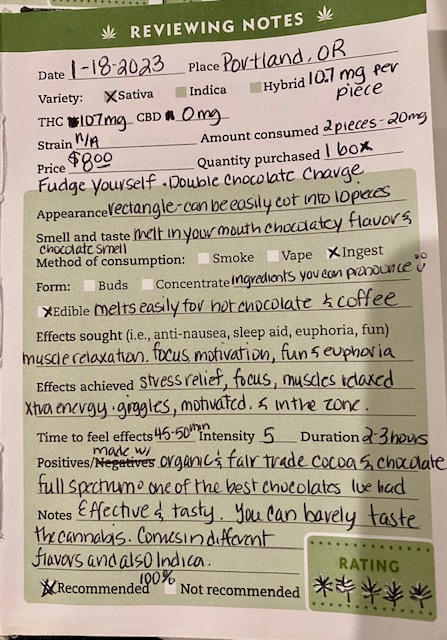 REVIEWING NOTES
Date 1-18-2023 Place Portland, OR
Variety: Sativa Indica Hybrid 10.7 mg per piece
THC 107mg CBD 0mg
Strain n/A Amount consumed 2 pieces - 20mg
Price $8.00 Quantity purchased 1 box
Fudge Yourself • Double Chocolate Charge
Appearance rectangle - can be easily cut into 10 pieces
Smell and taste melt in your mouth chocolatey flavors
chocolate smell
Method of consumption: Smoke Vape Ingest
Form: Buds Concentrate ingredients you can pronounce
Edible melts easily for hot chocolate & coffee
Effects sought (i.e., anti-nausea, sleep aid, euphoria, fun)
muscle relaxation, focus, motivation, fun & euphoria
Effects achieved stress relief, focus, muscles relaxed
xtra energy • giggles, motivated. & in the zone.
Time to feel effects 45-50min Intensity 5 Duration 2-3 hours
made w/
Positives/Negatives organic & fair trade cocoa & chocolate
full spectrum • one of the best chocolates Ive had
Notes Effective & tasty. You can barely taste
the cannabis. Comes in different
flavors and also Indica.
100%
Recommended Not recommended
RATING